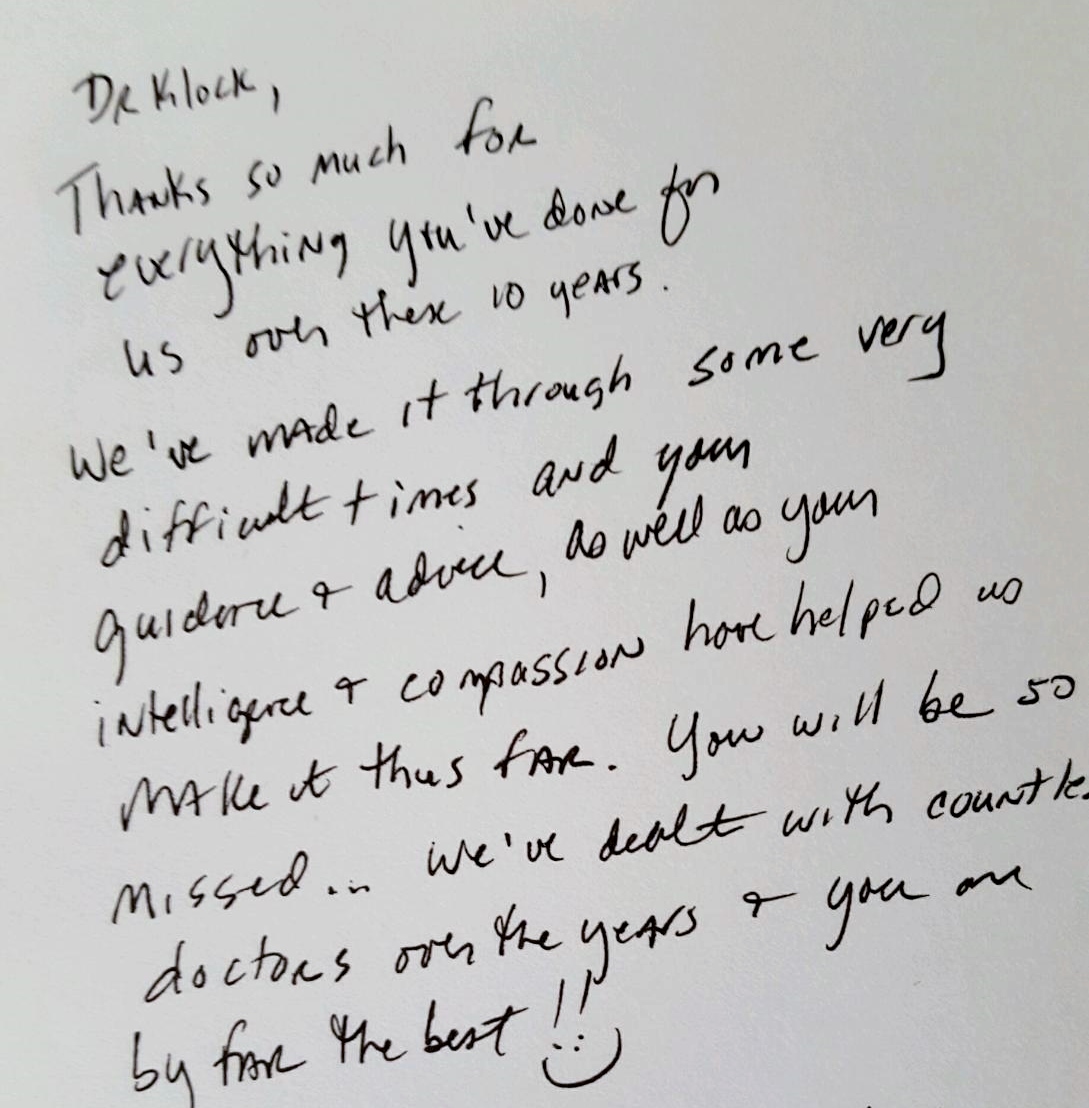 Dr Klock,
Thanks so much for
everything you've done for
us over these 10 years.
We've made it through some very
difficult times and your
guidance & advice, as well as your
intelligence & compassion have helped us
make it thus far. You will be so
missed... We've dealt with countle
doctors over the years & you are
by far the best!!